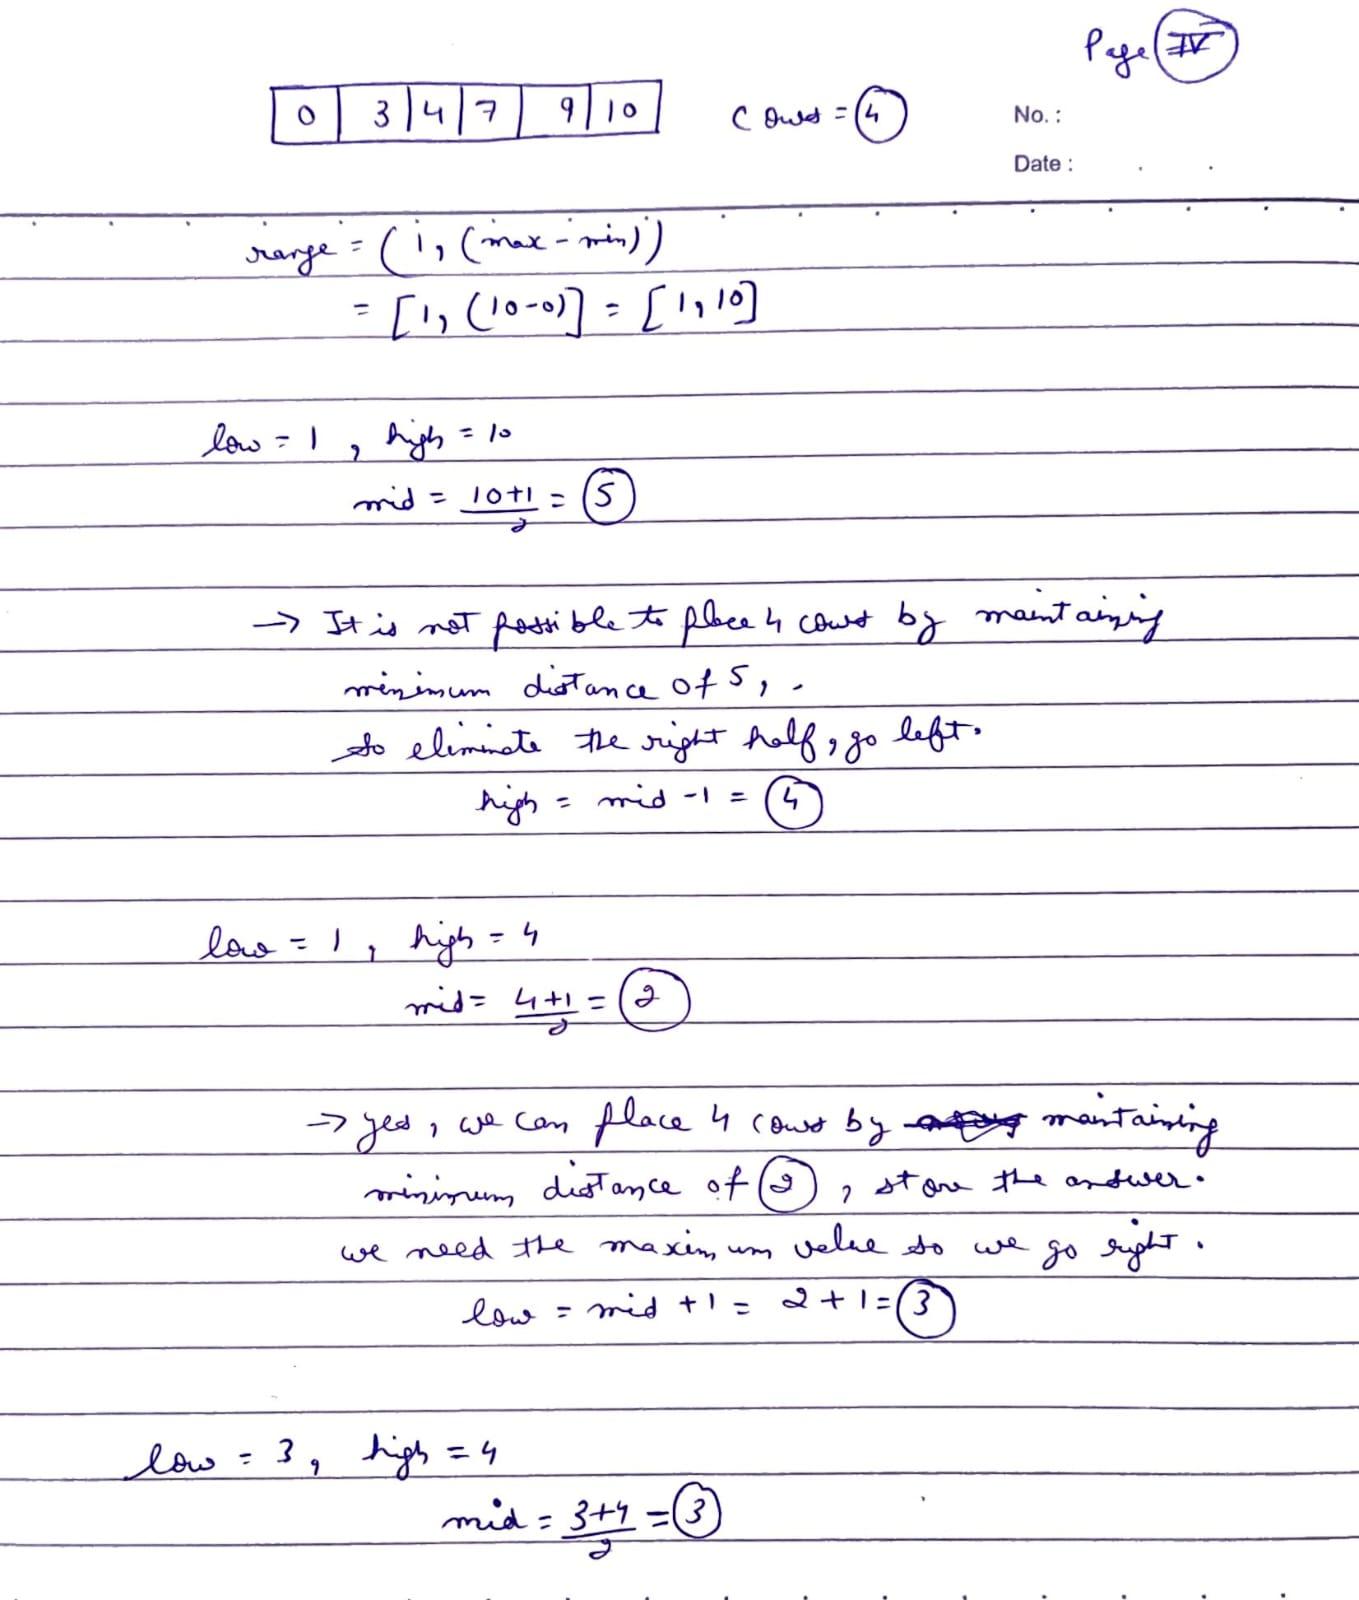 Page IV
0 3 4 7 9 10 Cows = 4
No. :
Date : . .
range = (1, (max - min))
= [1, (10-0)] = [1, 10]
low = 1 , high = 10
mid = 10+1/2 = 5
→ It is not possible to place 4 cows by maintaining
minimum distance of 5, .
So eliminate the right half, go left.
high = mid - 1 = 4
low = 1 , high = 4
mid = 4+1/2 = 2
→ yes, we can place 4 cows by maintaining
minimum distance of 2 , store the answer.
we need the maximum value so we go right.
low = mid + 1 = 2 + 1 = 3
low = 3, high = 4
mid = 3+4/2 = 3